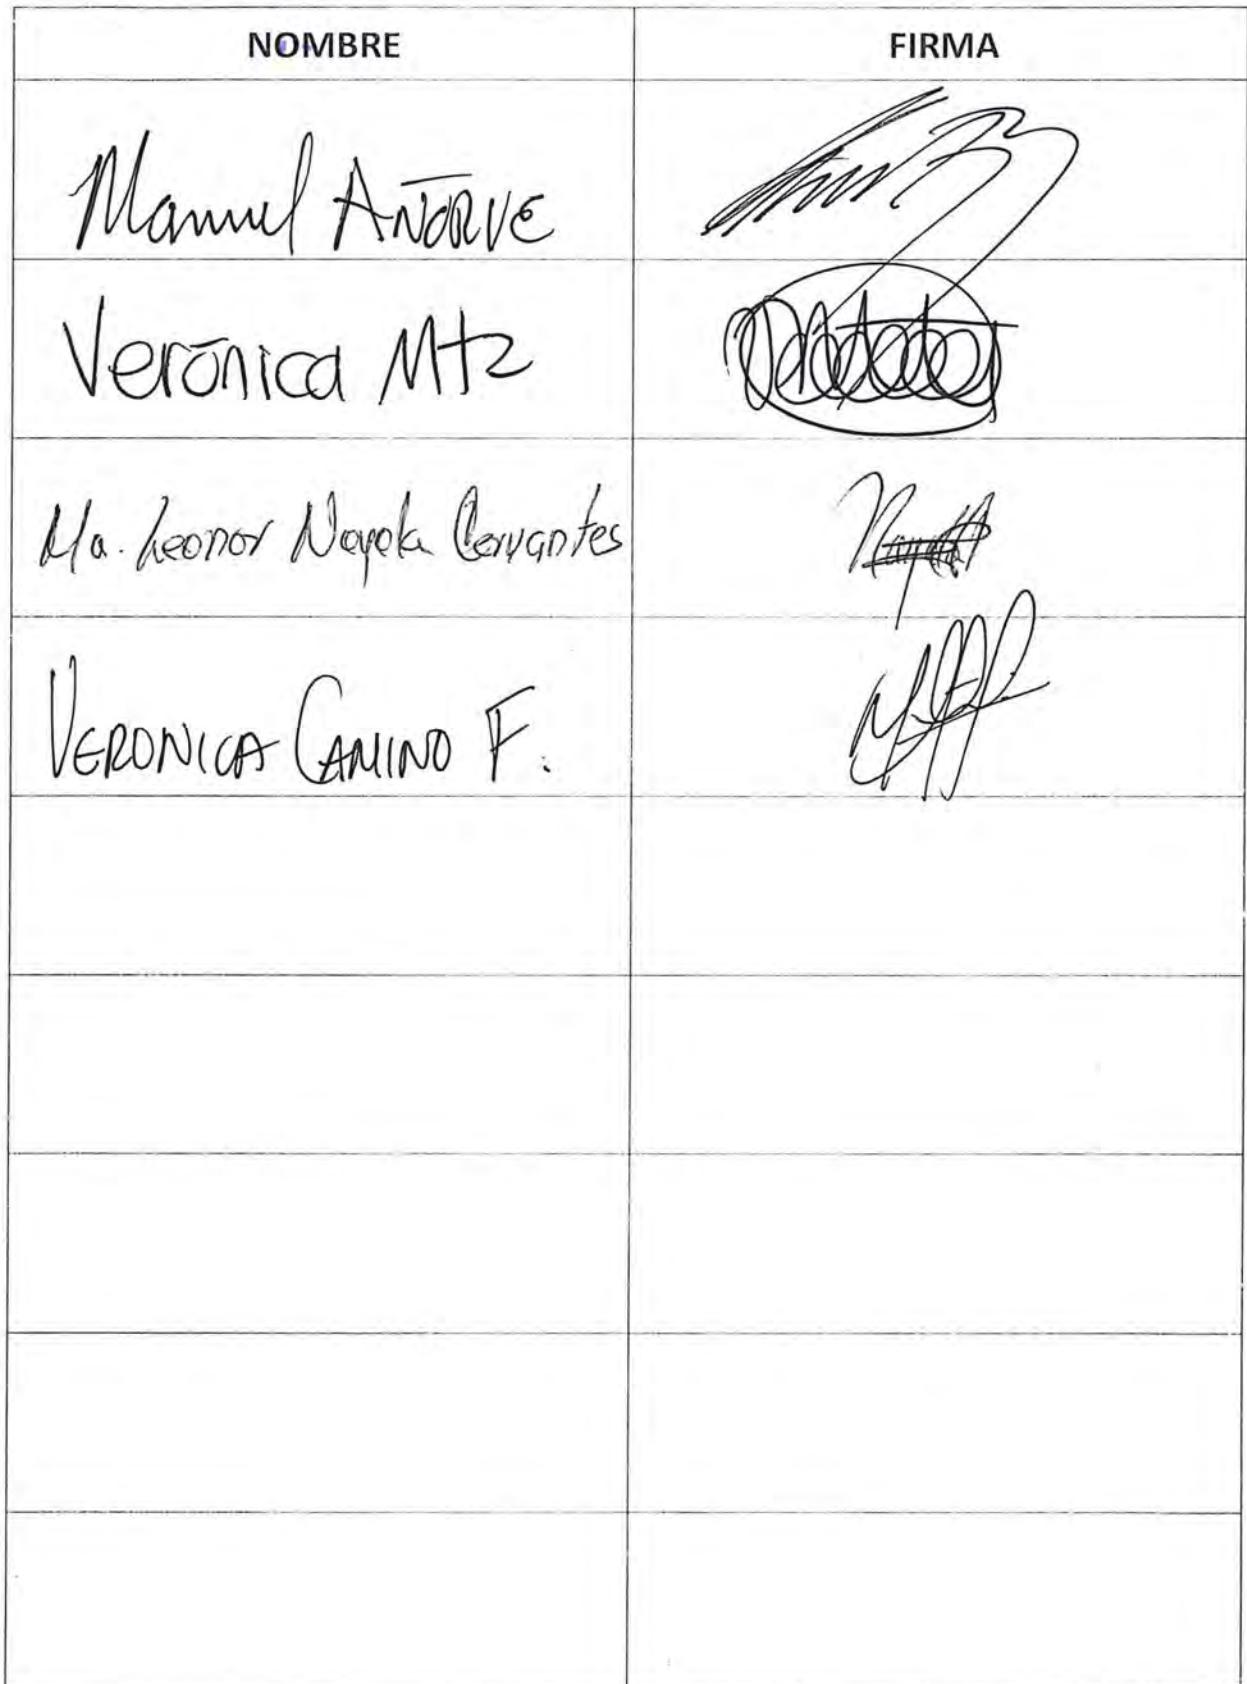 NOMBRE FIRMA
Manuel AÑORVE
Verónica Mtz
Ma. Leonor Noyola Cervantes
VERONICA CAMINO F.